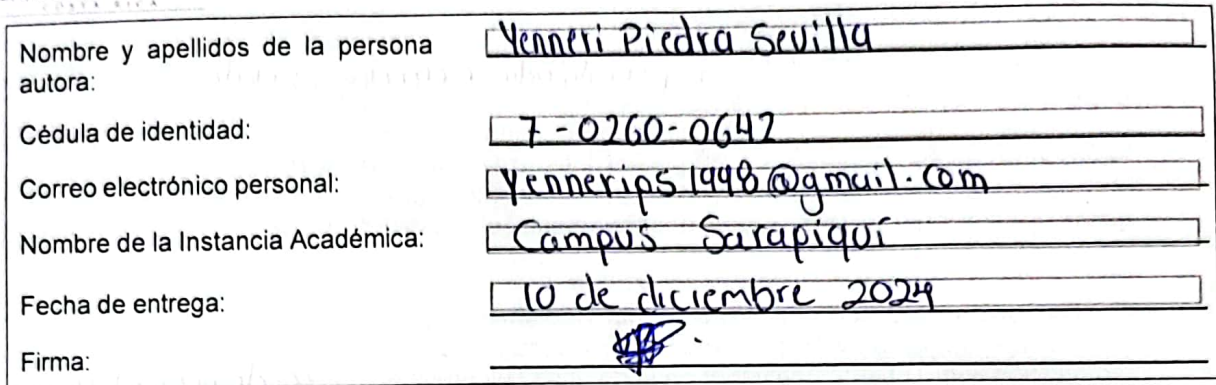 COSTA RICA
Nombre y apellidos de la persona
autora:
Yenneri Piedra Sevilla
Cédula de identidad:
7-0260-0642
Correo electrónico personal:
Yennerips1998@gmail.com
Nombre de la Instancia Académica:
Campus Sarapiquí
Fecha de entrega:
10 de diciembre 2024
Firma: